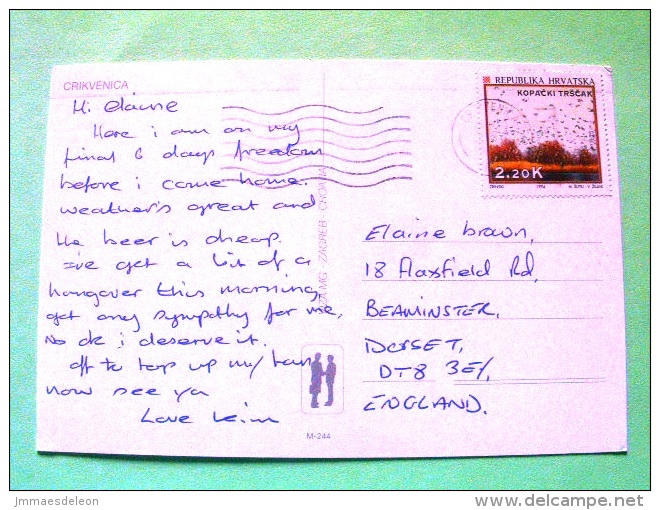 CRIKVENICA
Hi Elaine
Here i am on my
final 6 days freedom
before i come home.
weather's great and
the beer is cheap.
I've got a bit of a
hangover this morning,
got any sympathy for me,
No ok i deserve it.
off to top up my tan
now see ya
Love Kim
M-244
ZAGREB - CROATIA
REPUBLIKA HRVATSKA
KOPAČKI TRŠĆAK
2.20K
1994
Elaine brown,
18 Flaxfield Rd,
BEAMINSTER,
DORSET,
DT8 3EY,
ENGLAND.
jmmaesdeleon
delcampe.net